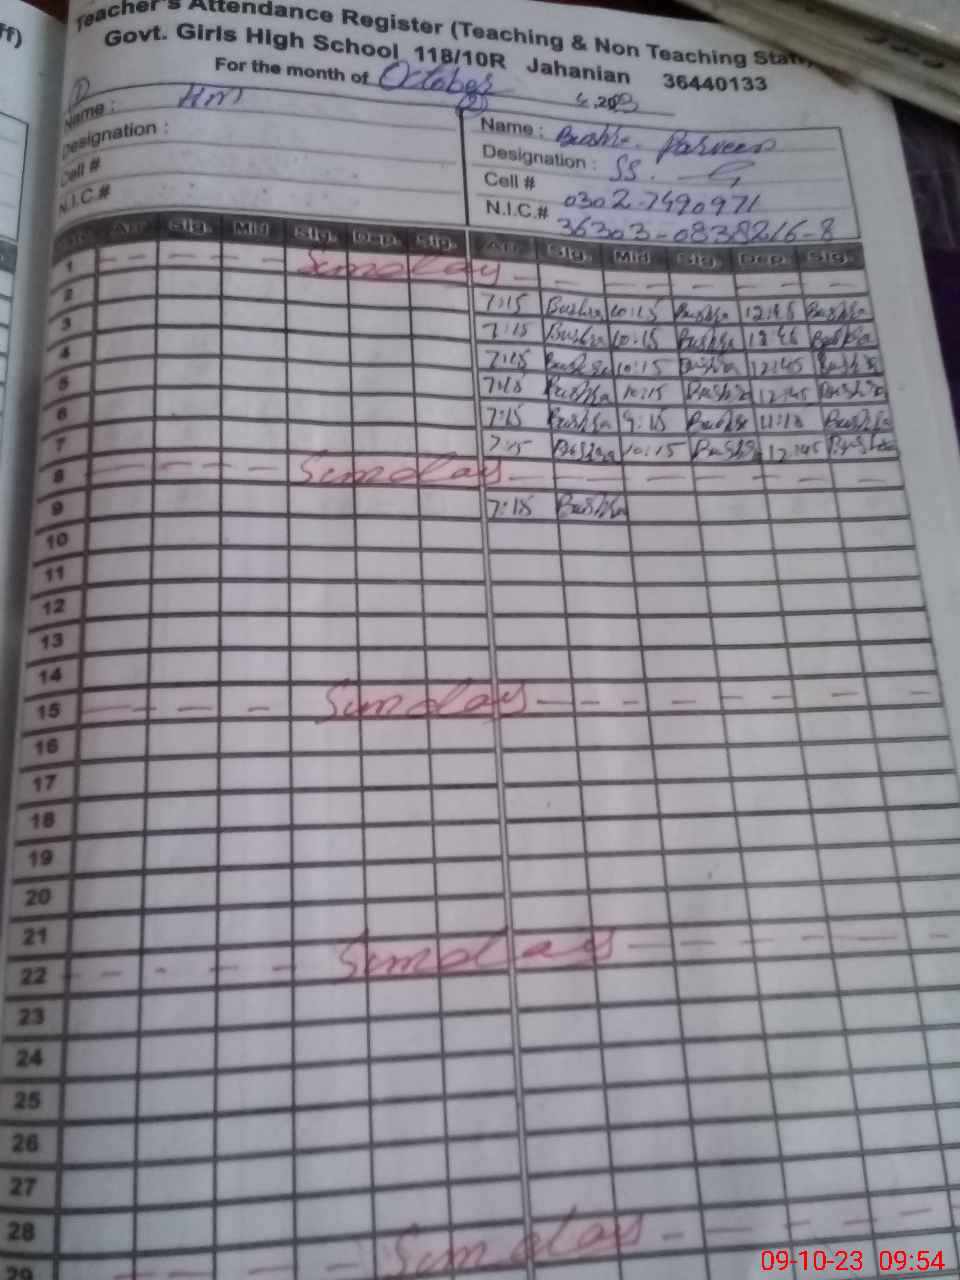 ff)
Teacher's Attendance Register (Teaching & Non Teaching Staff)
Govt. Girls High School 118/10R Jahanian 36440133
For the month of October 2023
① Name : HM
Designation :
Cell #
N.I.C.#
② Name : Bushra Parveen
Designation : SS.
Cell # 0302-7490971
N.I.C.# 36303-0838216-8
Arr. Sig. Mid Sig. Dep. Sig. Arr. Sig. Mid Sig. Dep. Sig.
1 Sunday
2 7:15 Bushra 10:15 Bushra 12:45 Bushra
3 7:15 Bushra 10:15 Bushra 12:45 Bushra
4 7:15 Bushra 10:15 Bushra 12:45 Bushra
5 7:15 Bushra 10:15 Bushra 12:45 Bushra
6 7:15 Bushra 9:15 Bushra Bushra
7 7:15 Bushra 10:15 Bushra 12:45 Bushra
8 Sunday
9 7:15 Bushra
10
11
12
13
14
15 Sunday
16
17
18
19
20
21
22 Sunday
23
24
25
26
27
28
29 Sunday
09-10-23 09:54